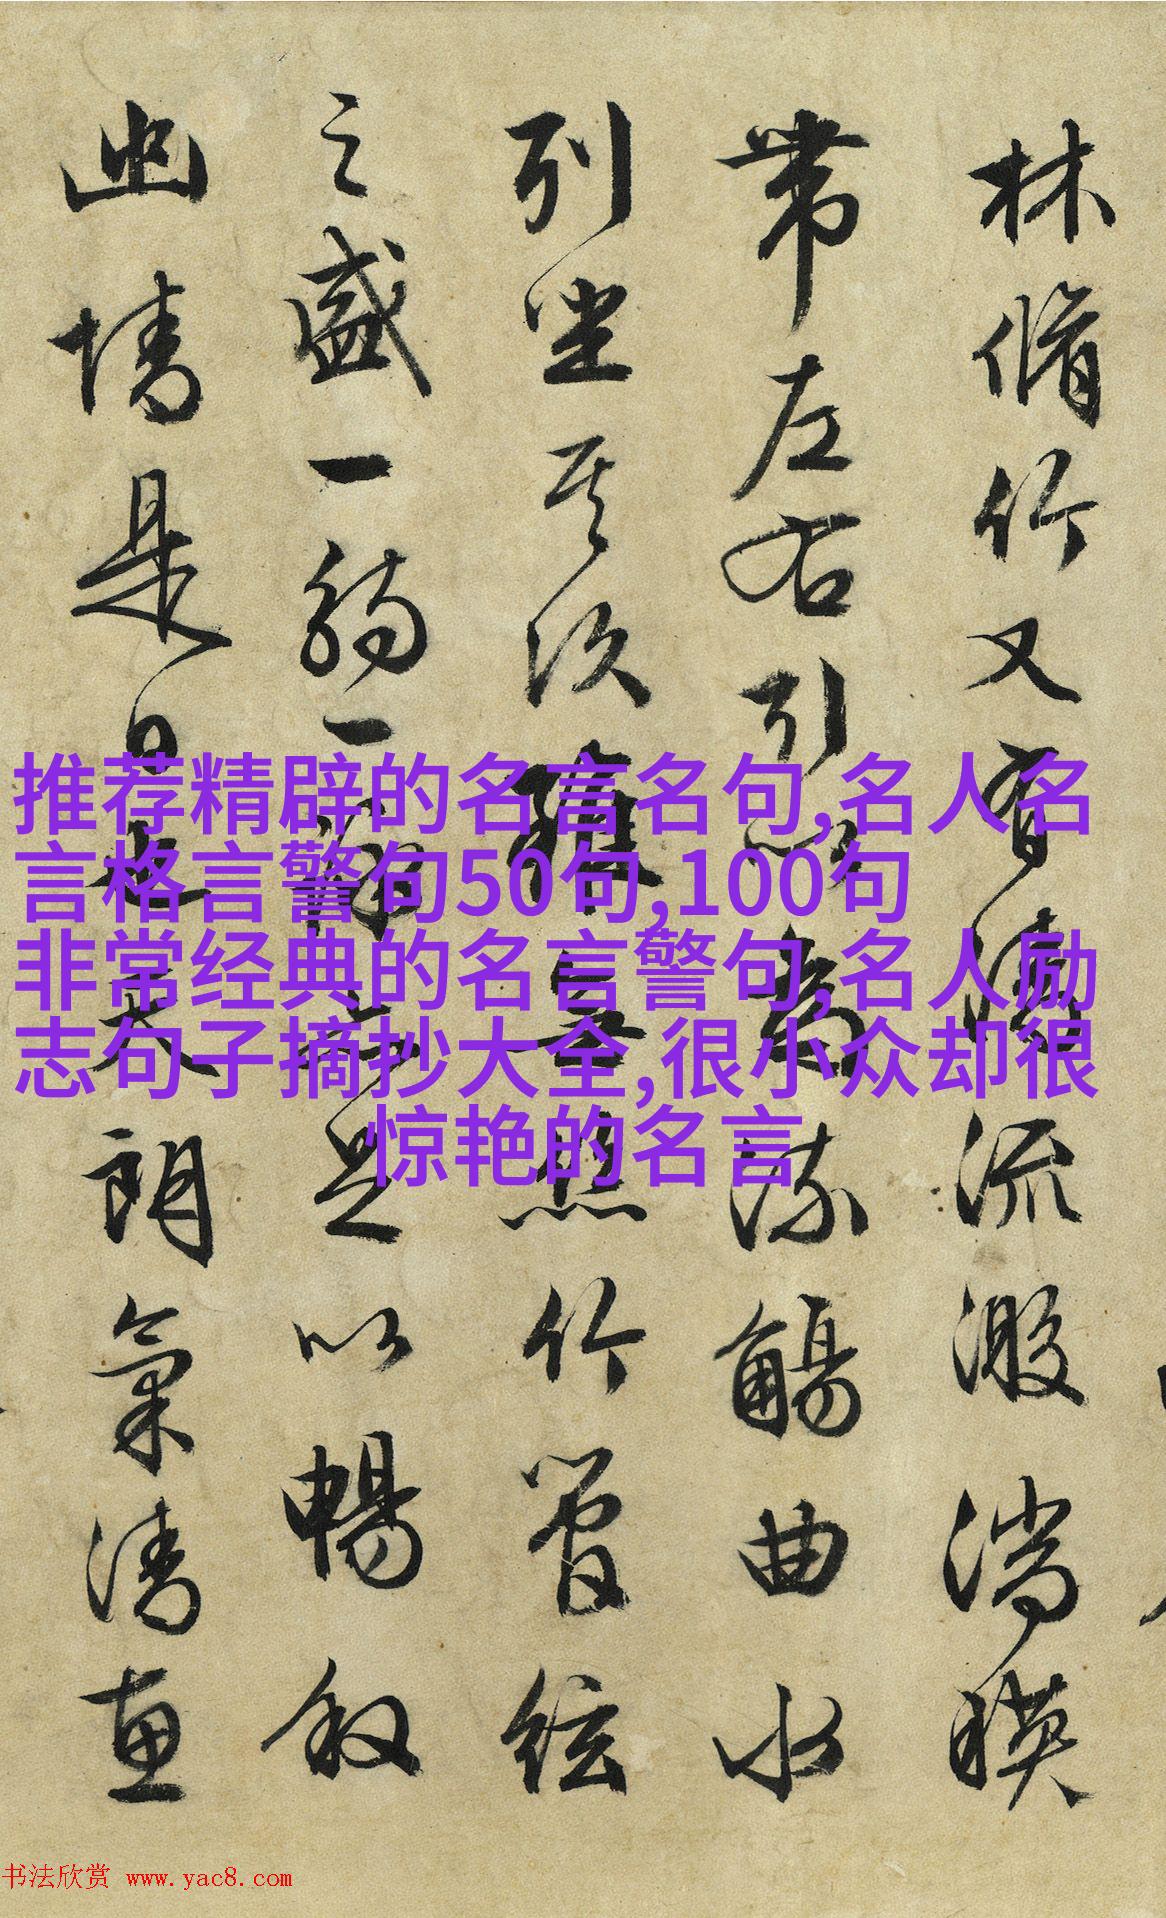 林脩竹又有清流激湍暎
帶左右引以為流觴曲水
列坐其次雖無絲竹管絃
之盛一觴一詠亦足以暢敘
幽情是日也天朗氣清惠
推荐精辟的名言名句,名人名
言格言警句50句,100句
非常经典的名言警句,名人励
志句子摘抄大全,很小众却很
惊艳的名言
书法欣赏 www.yac8.com